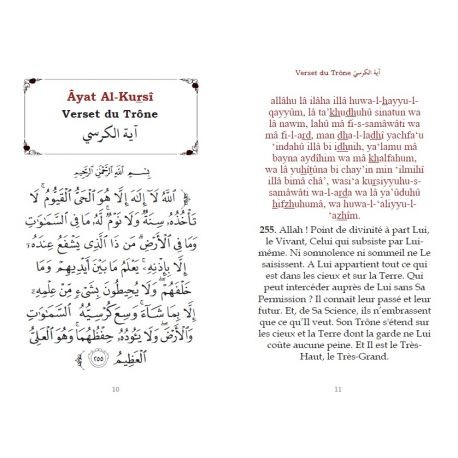 Âyat Al-Kursî
Verset du Trône
آية الكرسي
بِسْمِ اللَّهِ الرَّحْمَٰنِ الرَّحِيمِ
ٱللَّهُ لَآ إِلَٰهَ إِلَّا هُوَ ٱلْحَيُّ ٱلْقَيُّومُ ۚ لَا
تَأْخُذُهُۥ سِنَةٌ وَلَا نَوْمٌ ۚ لَّهُۥ مَا فِى ٱلسَّمَٰوَٰتِ
وَمَا فِى ٱلْأَرْضِ ۗ مَن ذَا ٱلَّذِى يَشْفَعُ عِندَهُۥٓ
إِلَّا بِإِذْنِهِۦ ۚ يَعْلَمُ مَا بَيْنَ أَيْدِيهِمْ وَمَا
خَلْفَهُمْ ۖ وَلَا يُحِيطُونَ بِشَىْءٍ مِّنْ عِلْمِهِۦٓ
إِلَّا بِمَا شَآءَ ۚ وَسِعَ كُرْسِيُّهُ ٱلسَّمَٰوَٰتِ
وَٱلْأَرْضَ ۖ وَلَا يَـُٔودُهُۥ حِفْظُهُمَا ۚ وَهُوَ ٱلْعَلِىُّ
ٱلْعَظِيمُ ٢٥٥
10
Verset du Trône آية الكرسي
allâhu lâ ilâha illâ huwa-l-hayyu-l-
qayyûm, lâ ta'khudhuhû sinatun wa
lâ nawm, lahû mâ fi-s-samâwâti wa
mâ fi-l-ard, man dha-l-ladhî yachfa'u
'indahû illâ bi idhnih, ya'lamu mâ
bayna aydîhim wa mâ khalfahum,
wa lâ yuhîtûna bi chay'in min 'ilmihî
illâ bimâ châ', wasi'a kursiyyuhu-s-
samâwâti wa-l-arda wa lâ ya'ûduhû
hifzhuhumâ, wa huwa-l-'aliyyu-l-
'azhîm.
255. Allah ! Point de divinité à part Lui,
le Vivant, Celui qui subsiste par Lui-
même. Ni somnolence ni sommeil ne Le
saisissent. A Lui appartient tout ce qui
est dans les cieux et sur la Terre. Qui
peut intercéder auprès de Lui sans Sa
Permission ? Il connaît leur passé et leur
futur. Et, de Sa Science, ils n'embrassent
que ce qu'Il veut. Son Trône s'étend sur
les cieux et la Terre dont la garde ne Lui
coûte aucune peine. Et Il est le Très-
Haut, le Très-Grand.
11